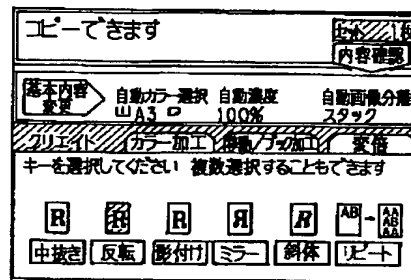 コピーできます
セット 1枚
内容確認
基本内容
変更
自動カラー選択 自動濃度 自動画像分離
A3 100% スタック
クリエイト カラー加工 複数/ブック加工 変倍
キーを選択してください 複数選択することもできます
R R R R R AB AB AB
AA
中抜き 反転 影付け ミラー 斜体 リピート